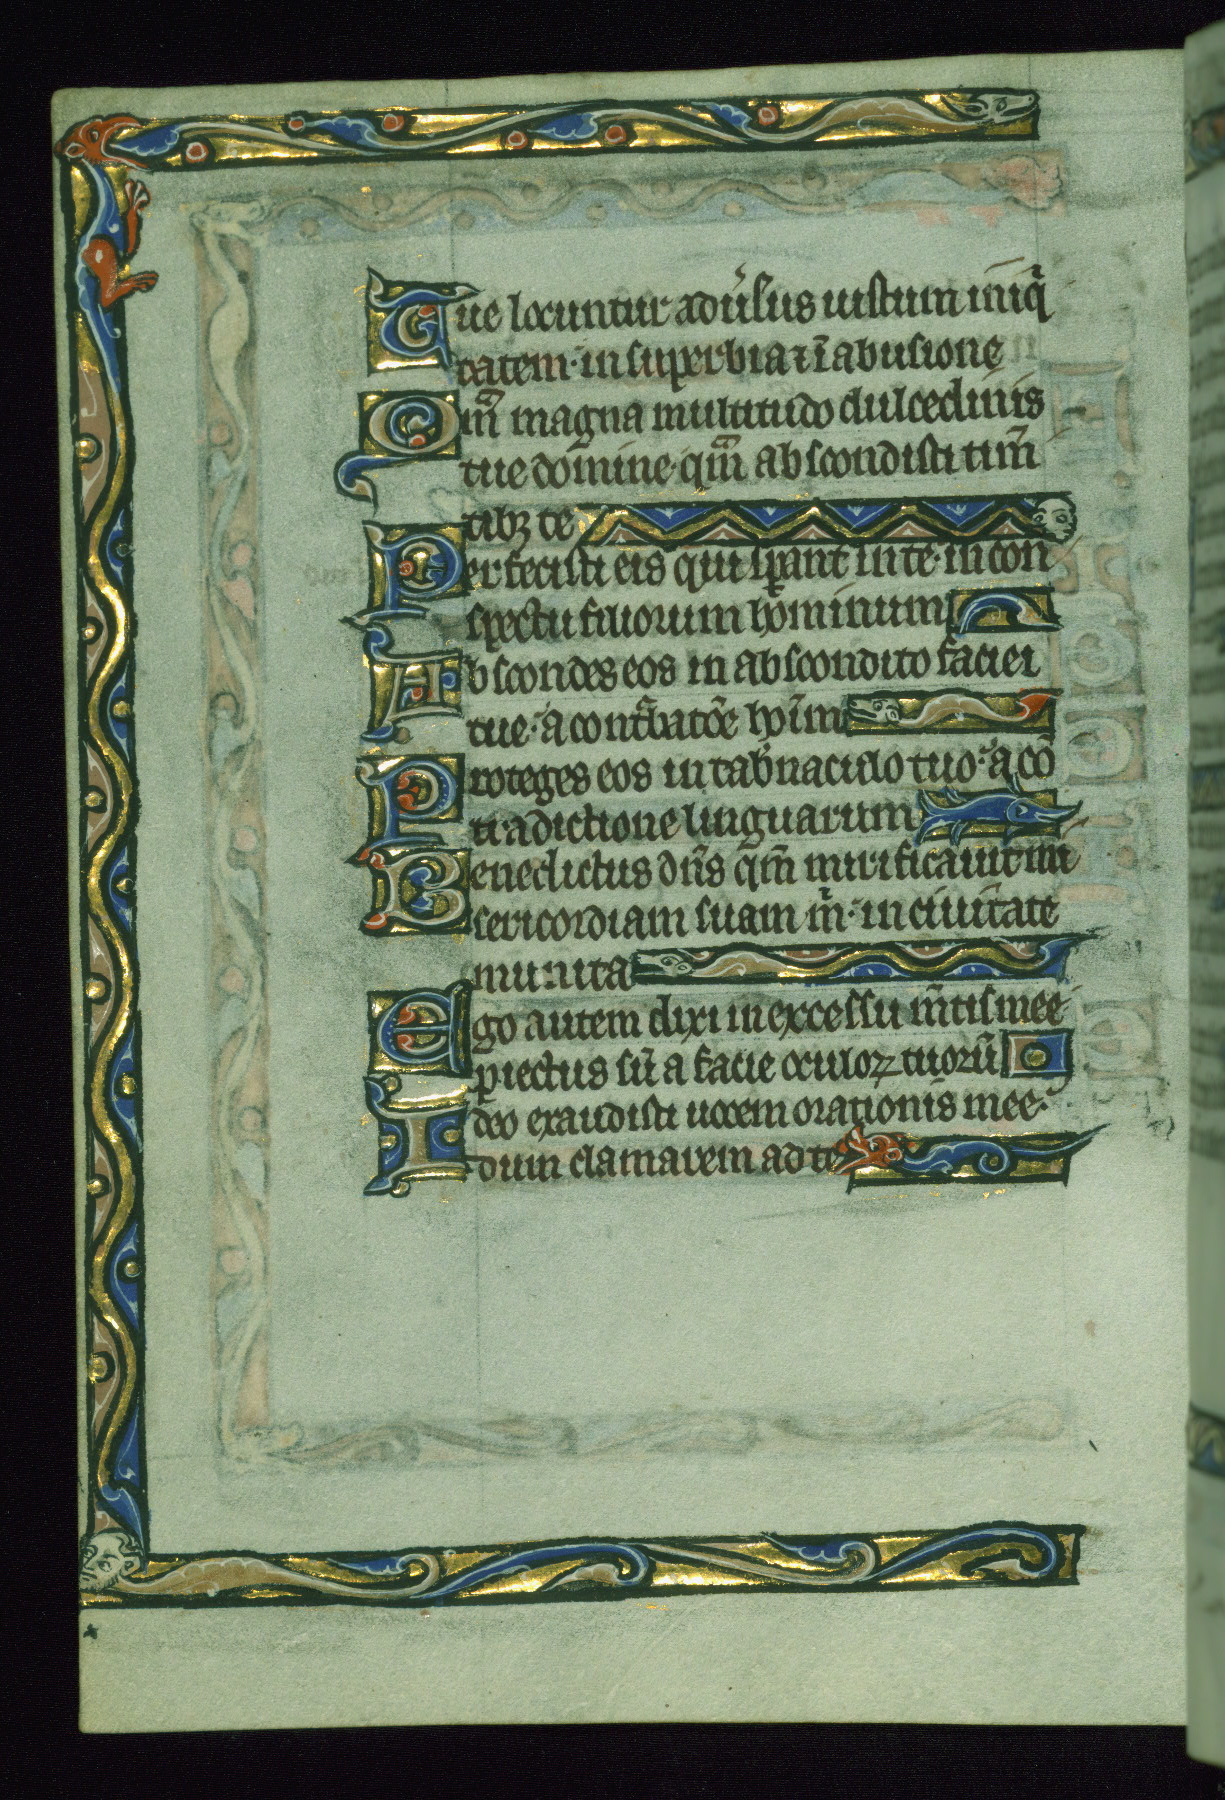 Que locuntur adũsus iustum iniq̃
tatem· in superbia ⁊ ĩ abusione
Qm̃ magna multitudo dulcedinis
tue domine· qm̃ abscondisti tim̃
tibꝫ te
Perfecisti eis qui sꝑant in te· in con
spectu filiorum hominum
Abscondes eos in abscondito faciei
tue· a cont̃batõe hoĩm
Proteges eos in tab̃naculo tuo· a cõ
tradictione linguarum
Benedictus dñs qm̃ mirificauit mi
sericordiam suam m̃· in ciuitate
munita
Ego autem dixi in excessu m̃tis mee
ꝓiectus sũ a facie oculoꝝ tuorũ
Ideo exaudisti uocem orationis mee·
dum clamarem ad te